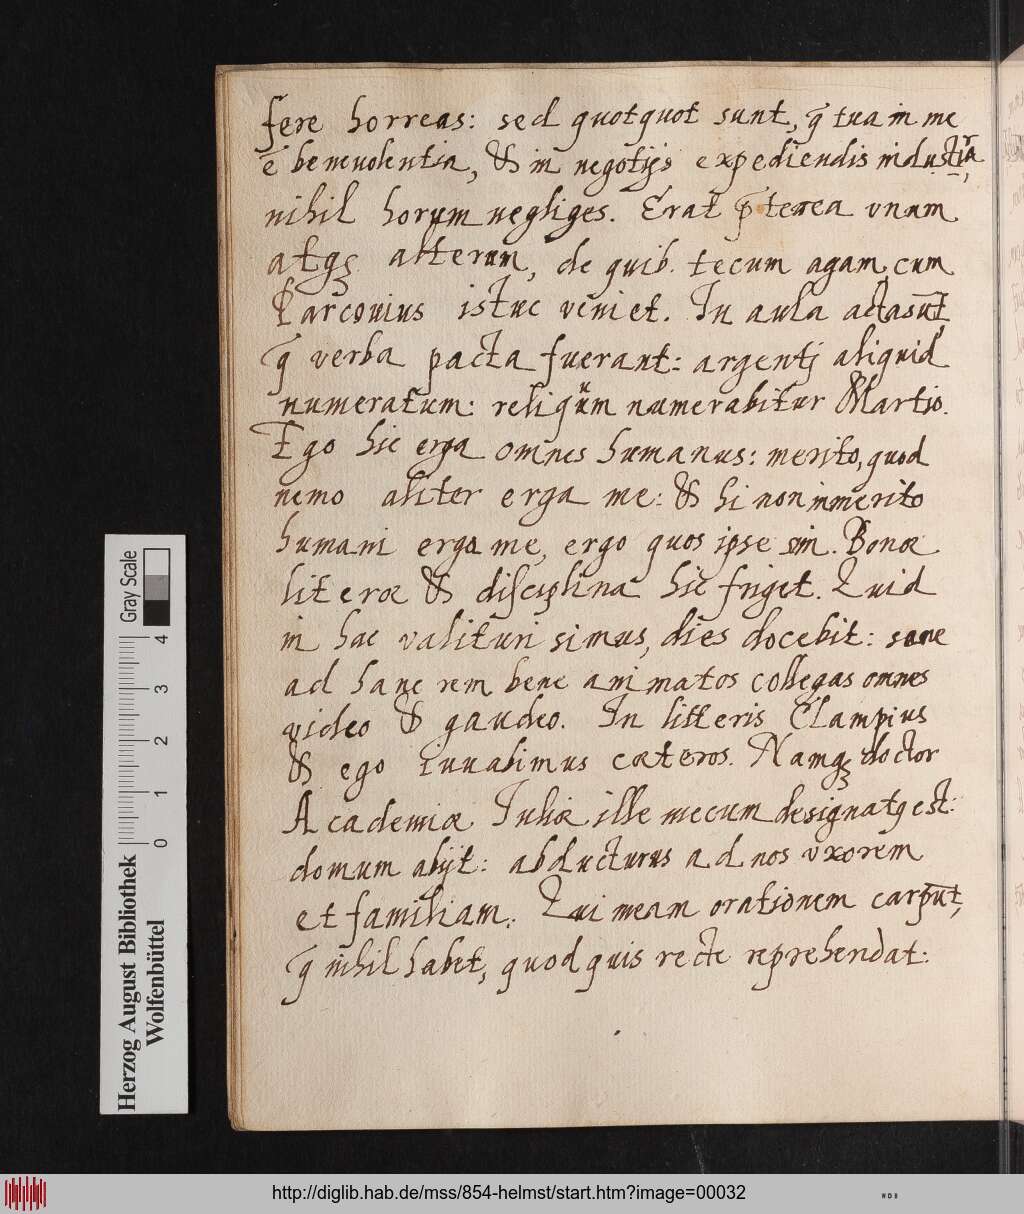 fere horreas: sed quotquot sunt, q̃ tua in me
ẽ benevolentia, & in negotijs expediendis industria,
nihil horum negliges. Erat p̃terea vnum
atq3 alterum, de quib. tecum agam, cum
Parcovius istuc veniet. In aula acta sũt,
q̃ verba pacta fuerant: argentj aliquid
numeratum: reliqũm numerabitur Martio.
Ego hic erga omnes humanus: merito, quod
nemo aliter erga me: & hi non immerito
humani erga me, ergo quos ipse sim. Bonæ
literæ & disciplina hic friget. Quid
in hac valituri simus, dies docebit: sane
ad hanc rem bene animatos collegas omnes
video & gaudeo. In litteris Clampius
& ego iuvabimus cæteros. Namq3 doctor
Academiæ Iuliæ ille mecum designatq est:
domum abijt: abducturus ad nos vxorem
et familiam. Qui meam orationem carpũt,
q̃ nihil habet, quod quis recte reprehendat:
Gray Scale
0 1 2 3 4
Herzog August Bibliothek
Wolfenbüttel
http://diglib.hab.de/mss/854-helmst/start.htm?image=00032